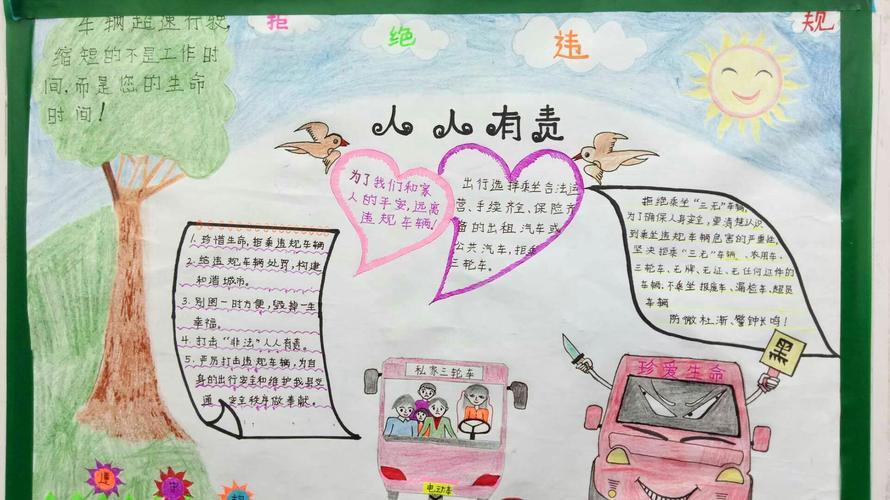 车辆超速行驶,
缩短的不是工作时
间,而是您的生命
时间!
拒 绝 违 规
人人有责
为了我们和家
人的平安,远离
违规车辆!
出行选择乘坐合法运
营、手续齐全、保险齐
备的出租汽车或
公共汽车,拒乘
三轮车。
拒绝乘坐“三无”车辆,
为了确保人身安全,要清楚认识
到乘坐违规车辆危害的严重性,
坚决拒乘“三无”车辆、农用车、
三轮车、无牌、无证、无任何证件的
车辆,不乘坐报废车、漏检车、超员
车辆
防微杜渐、警钟长鸣!
1. 珍惜生命,拒乘违规车辆
2. 给违规车辆处罚,构建
和谐城市。
3. 别图一时方便,毁掉一生
幸福。
4. 打击“非法”人人有责。
5. 严厉打击违规车辆,为自
身的出行安全和维护我县交
通安全秩序做奉献。
私家三轮车
电动车
珍爱生命
违